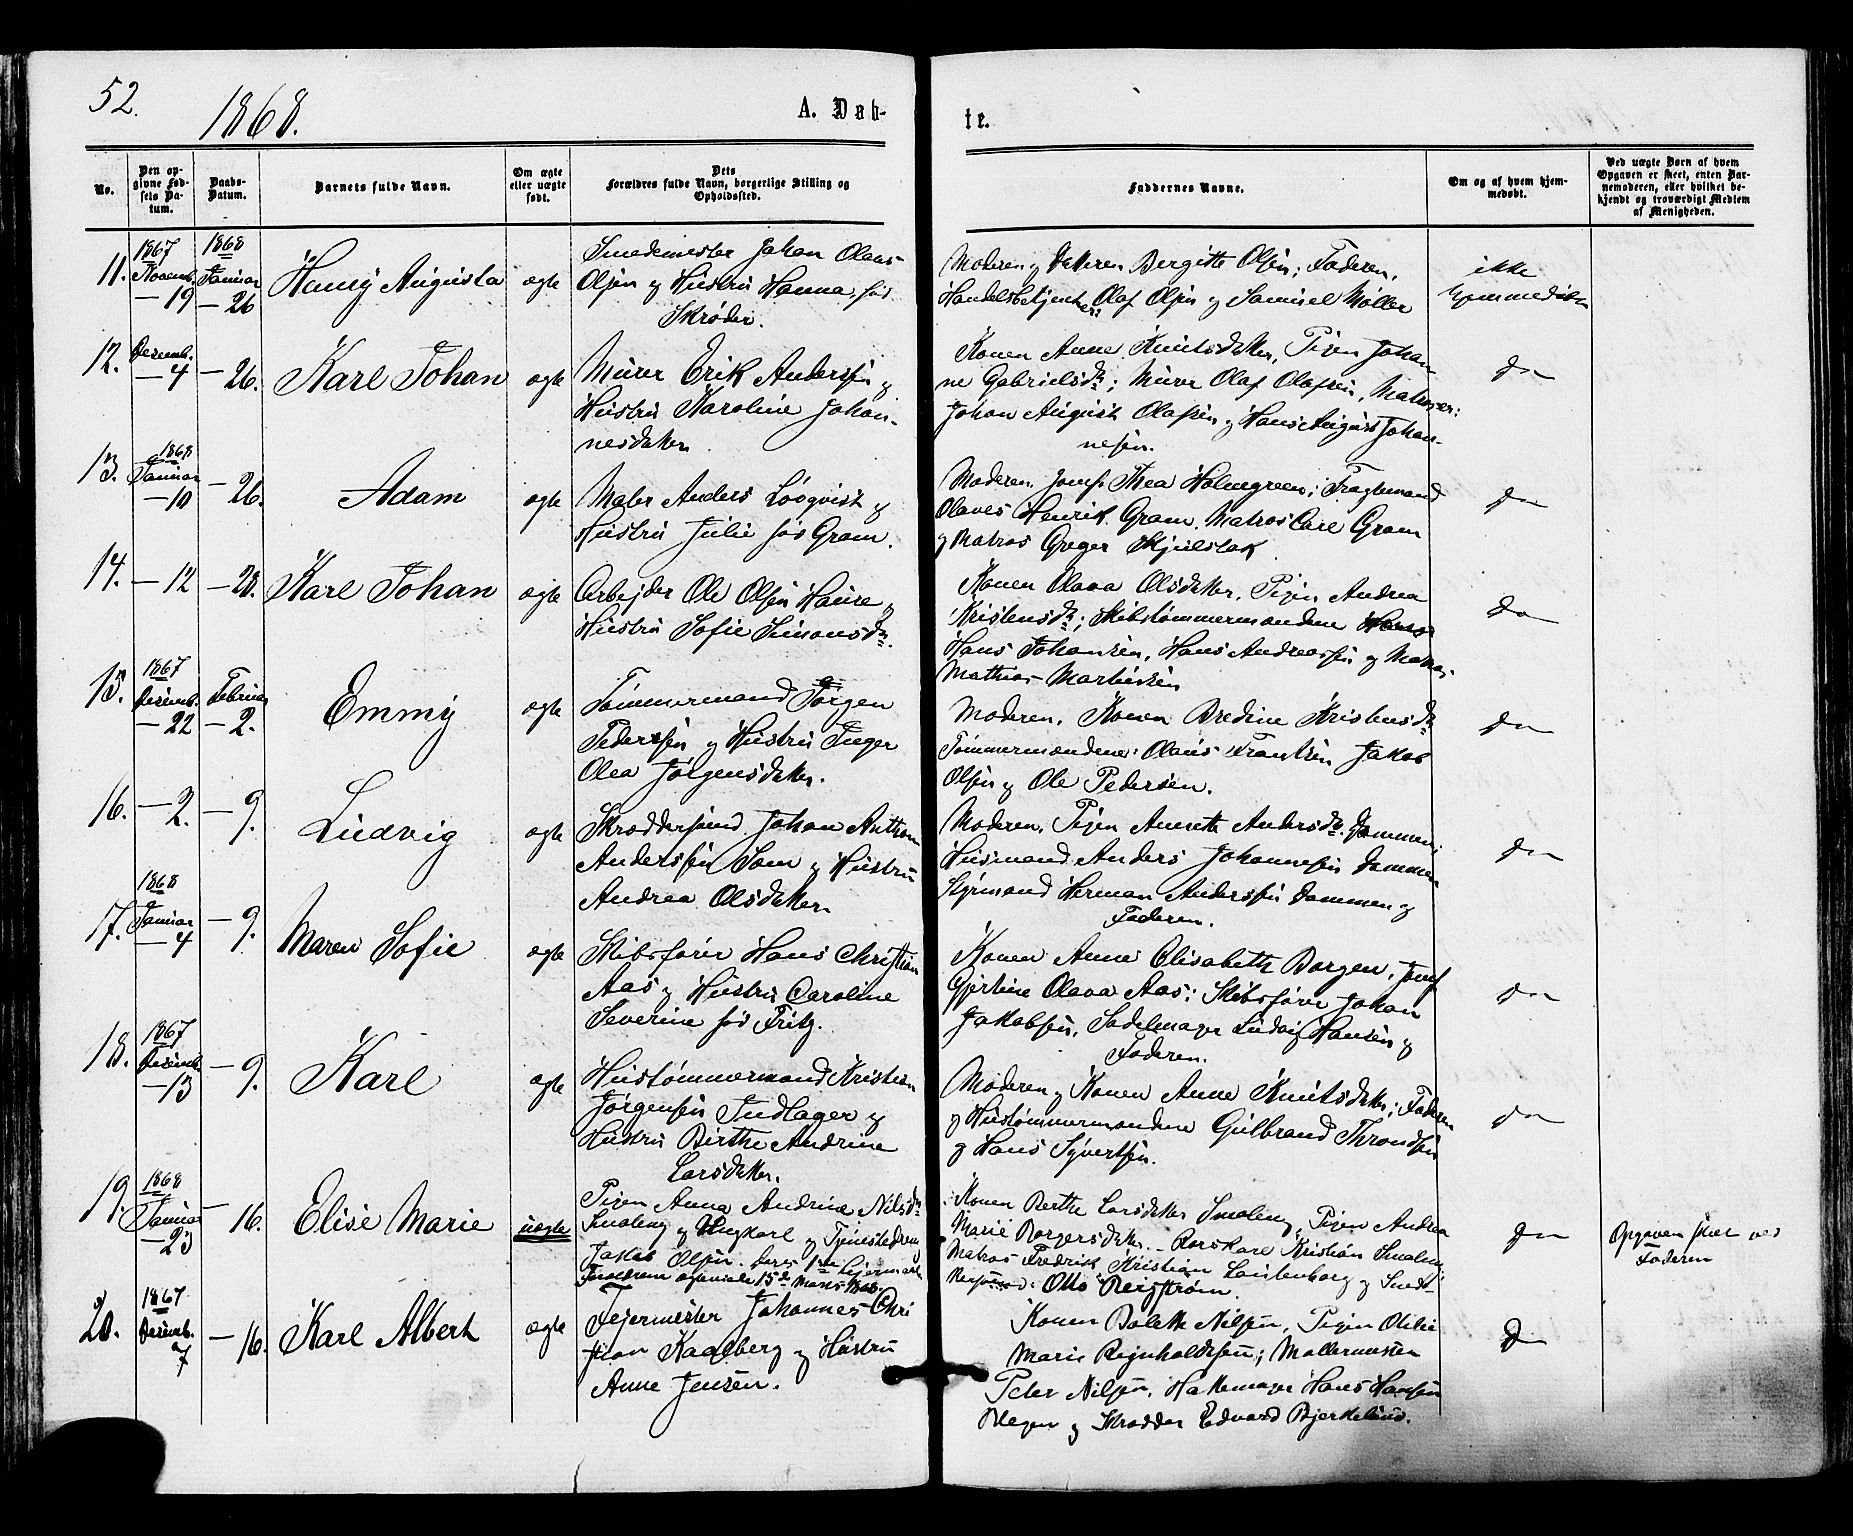 52.
1868.
A. Døb-
te.
No.
Den op-
givne Fød-
sels Da-
tum.
Daabs-
Datum.
Barnets fulde Navn.
Om ægte
eller uægte
født.
Dets
Forældres fulde Navn, borgerlige Stilling og
Opholdssted.
Faddernes Navne.
Om og af hvem hjem-
medøbt.
Ved uægte Børn af hvem
Opgaven er skeet, enten Bar-
nemoderen, eller hvilket be-
kjendt og troværdigt Medlem
af Menigheden.
11.
1867
Novemb.
— 19
1868
Januar
— 26
Augusta
ægte
Smedemester Johan Olaus
Olsen og Hustru Hanna, fød
Skrøder.
Moderen og Bergitte Olsen; Faderen,
Handelsbetjent Olaf Olsen og Samuel Møller
ikke
hjemmedøbt
12.
Desemb.
— 4
— 26.
Karl Johan
ægte
Murer Erik Andersen og
Hustru Karoline Johan-
nesdatter
Konen Anne Knutsdatter, Pigen Johan
ne Gabrielsdr; Murer Olaf Olafsen, Matroser:
Johan August Olafsen og Hans August Johan-
nesen.
do
13.
1868
Januar
— 10
— 26.
Adam
ægte
Maler Anders Løvqvist og
Hustru Julie fød Gram.
Moderen, Jomf Thea Holmgreen; Fragtemand
Olaves Henrik Gram, Matros Carl Gram
og Matros Greger
do
14.
— 12
— 28.
Karl Johan
ægte
Arbejder Ole Olsen Haure og
Hustru Sofie Simonsdr.
Konen Olava Olsdatter, Pigen Andrea
Kristensdr; Skibstømmermændene
Hans Johansen, Hans Andreassen og Matros
Mathias Martinsen
do
15.
1867
Desemb.
— 22
Februar
— 2.
Emmy
ægte
Tømmermand Jørgen
Pedersen og Hustru Inger
Olea Jørgensdatter.
Moderen, Konen Bredine Kristensdr
Tømmermændene: Olaus Frantsen Jakob
Olsen og Ole Pedersen.
do
16.
— 2.
— 9.
Ludvig
ægte
Skræddersvend Johan Anthon
Andersen Sam og Hustru
Andrea Olsdatter
Moderen, Pigen Annette Andersdr. Dammen;
Husmand Anders Johannesen Dammen
Styrmand Herman Andersen Dammen og
Faderen.
do
17.
1868
Januar
— 4
— 9.
Maren Sofie
ægte
Skibsfører Hans Christian
Aas og Hustru Caroline
Severine fød Fritz.
Konen Anne Elisabeth Borgen, Jomf
Gjertine Olava Aas; Skibsfører Johan
Jakobsen, Sadelmager Ludvig Hansen og
Faderen.
do
18.
1867
Desemb.
— 13
— 9.
Karl
ægte
Hustømmermand Kristian
Jørgensen Indlager og
Hustru Birthe Andrine
Larsdatter.
Moderen og Konen Anne Knutsdatter; Faderen
og Hustømmermændene Gulbrand Throndsen
og Hans Syvertsen.
do
19.
1868
Januar
— 23
— 16.
Elise Marie
uægte
Pigen Anna Andrine Nilsdr
Smaleng og Ungkarl og Tjenestedreng
Jakob Olsen. Deres 1ste
Forældrene 15de
Konen Berthe Larsdatter Smaleng, Pigen Andrea
Marie Borgersdatter. Rorskarl Kristian Smaleng
Matros Fredrik Kristian Lautenborg og Smed-
Otto Reigstrøm.
do
Opgaven skeet ved
Faderen
20.
1867
Desemb.
7
— 16.
Karl Albert
ægte
Fejermester Johannes Chri
stian Kaalberg og Hustru
Anne Jensen.
Konen Bolette Nilsen, Pigen Otilie
Marie Reynholdsen; Møllermester
Peter Nilsen, Hattemager Hans Hansen
Wegen og Skrædder Edvard Bjerkelund.
do